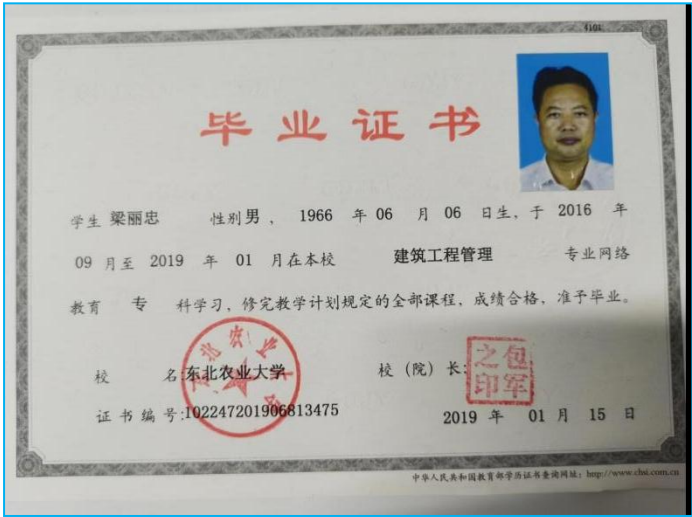 4101
毕业证书
学生 梁丽忠 性别 男 ， 1966 年 06 月 06 日生，于 2016 年
09 月至 2019 年 01 月在本校 建筑工程管理 专业网络
教育 专 科学习，修完教学计划规定的全部课程，成绩合格，准予毕业。
校 名:东北农业大学 校（院）长:
东北农业大学
包军之印
证书编号:102247201906813475 2019 年 01 月 15 日
中华人民共和国教育部学历证书查询网址：http://www.chsi.com.cn